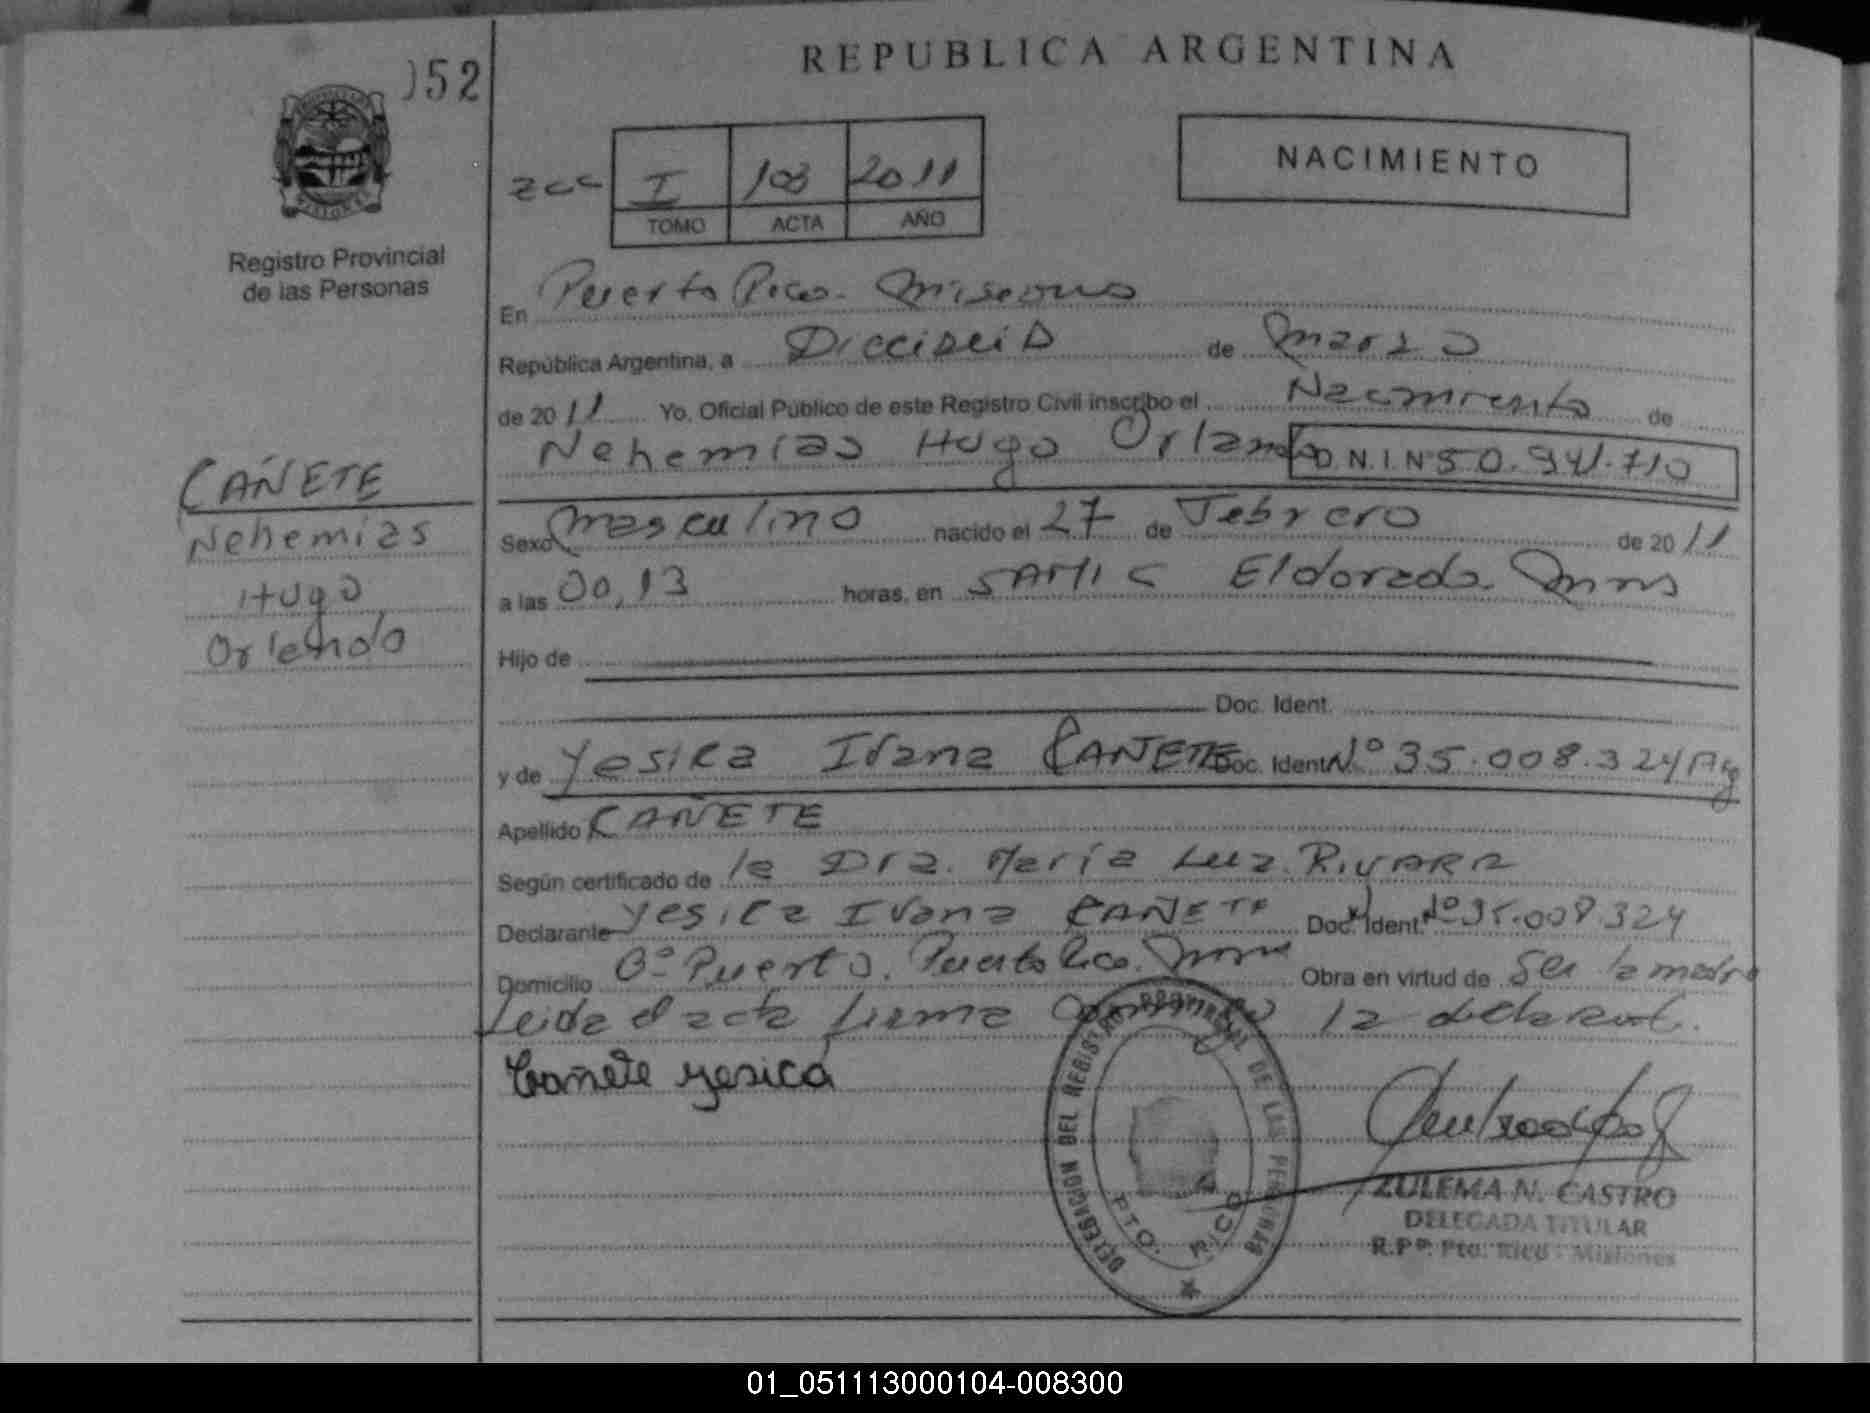 REPUBLICA ARGENTINA
052
Registro Provincial
de las Personas
NACIMIENTO
I 108 2011
TOMO ACTA AÑO
En Puerto Rico. Misiones
República Argentina, a Dieciseis de marzo
de 2011 Yo. Oficial Público de este Registro Civil inscribo el Nacimiento de
Nehemias Hugo Orlando D.N.I.Nº 50.941.710
CAÑETE
Nehemias
Hugo
Orlando
Sexo masculino nacido el 27 de Febrero de 2011
a las 00,13 horas, en SAMIC Eldorado. Mnes
Hijo de
Doc. Ident.
y de Yesica Ivana CAÑETE Doc. Ident. Nº 35.008.324 Arg
Apellido CAÑETE
Según certificado de la Dra. María Luz RIVARA
Declarante Yesica Ivana CAÑETE Doc. Ident. Nº 35.008.324
Domicilio Bº Puerto. Puerto Rico. Mnes Obra en virtud de ser la madre
Leida el acta firma conmigo la declarante.
Cañete Yesica
DELEGACION DEL REGISTRO PROVINCIAL DE LAS PERSONAS
PTO. RICO
ZULEMA N. CASTRO
DELEGADA TITULAR
R.Pº. Pto. Rico - Misiones
01_051113000104-008300